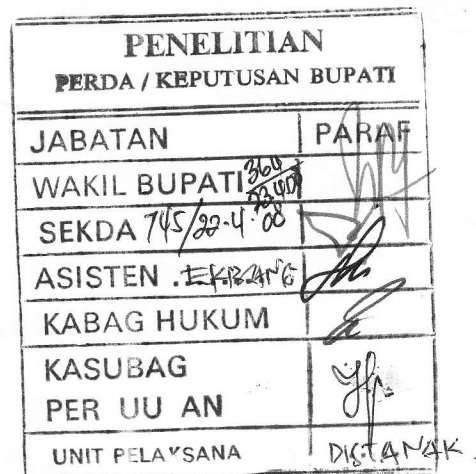 PENELITIAN
PERDA / KEPUTUSAN BUPATI
JABATAN PARAF
WAKIL BUPATI 364
SEKDA 745/22-4-08
ASISTEN . EKBANG
KABAG HUKUM
KASUBAG
PER UU AN
UNIT PELAKSANA DISTANAK